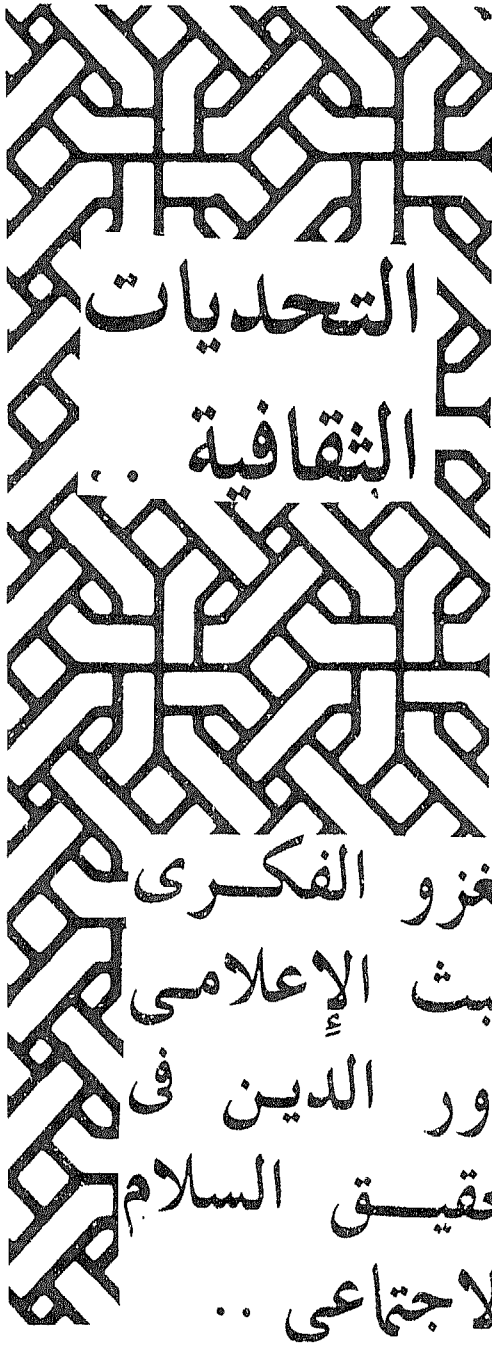 التحديات
الثقافية ..
غزو الفكرى
بث الإعلامى
ور الدين فى
حقيق السلام
لاجتماعى ..